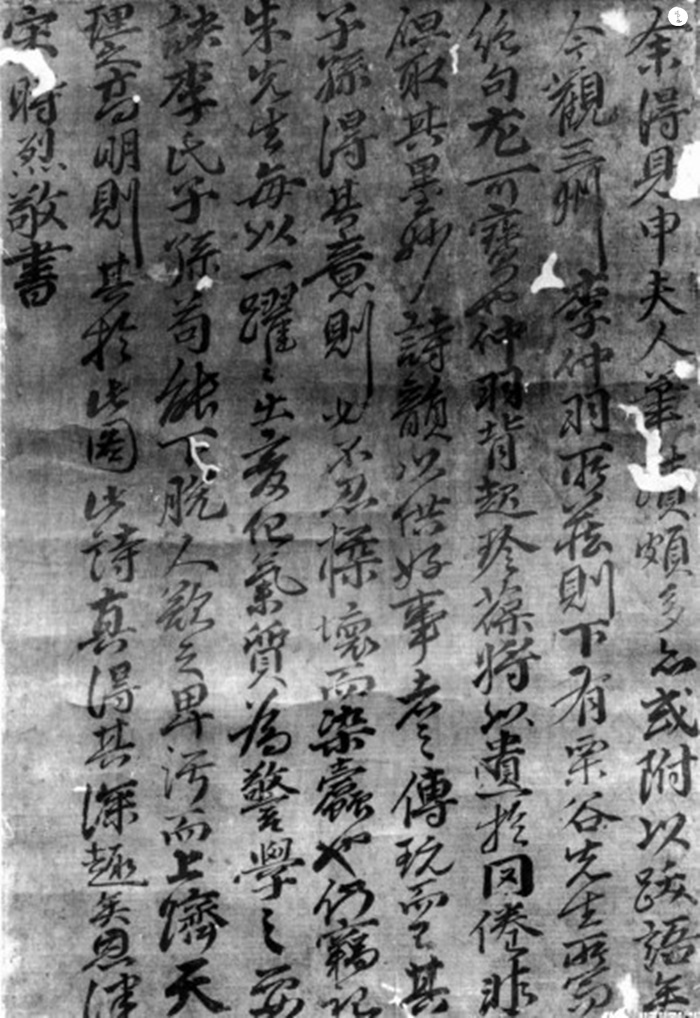 余得見申夫人筆蹟頗多亦或附以跋語矣
今觀三州李仲羽所藏則下有栗谷先生所寫
絶句尤可寶也仲羽背起珍葆將以遺於因倦非
但取其墨妙詩韻以供好事者之傳玩而已其
子孫得其意則必不忍慘壞而染蠹也仍竊記
朱先生每以一躍躍出變化氣質為警學之要
訣李氏子孫苟能下脫人欲之卑污而上躋天
理之高明則其於此圖此詩真得其深趣矣恩津
宋時烈敬書